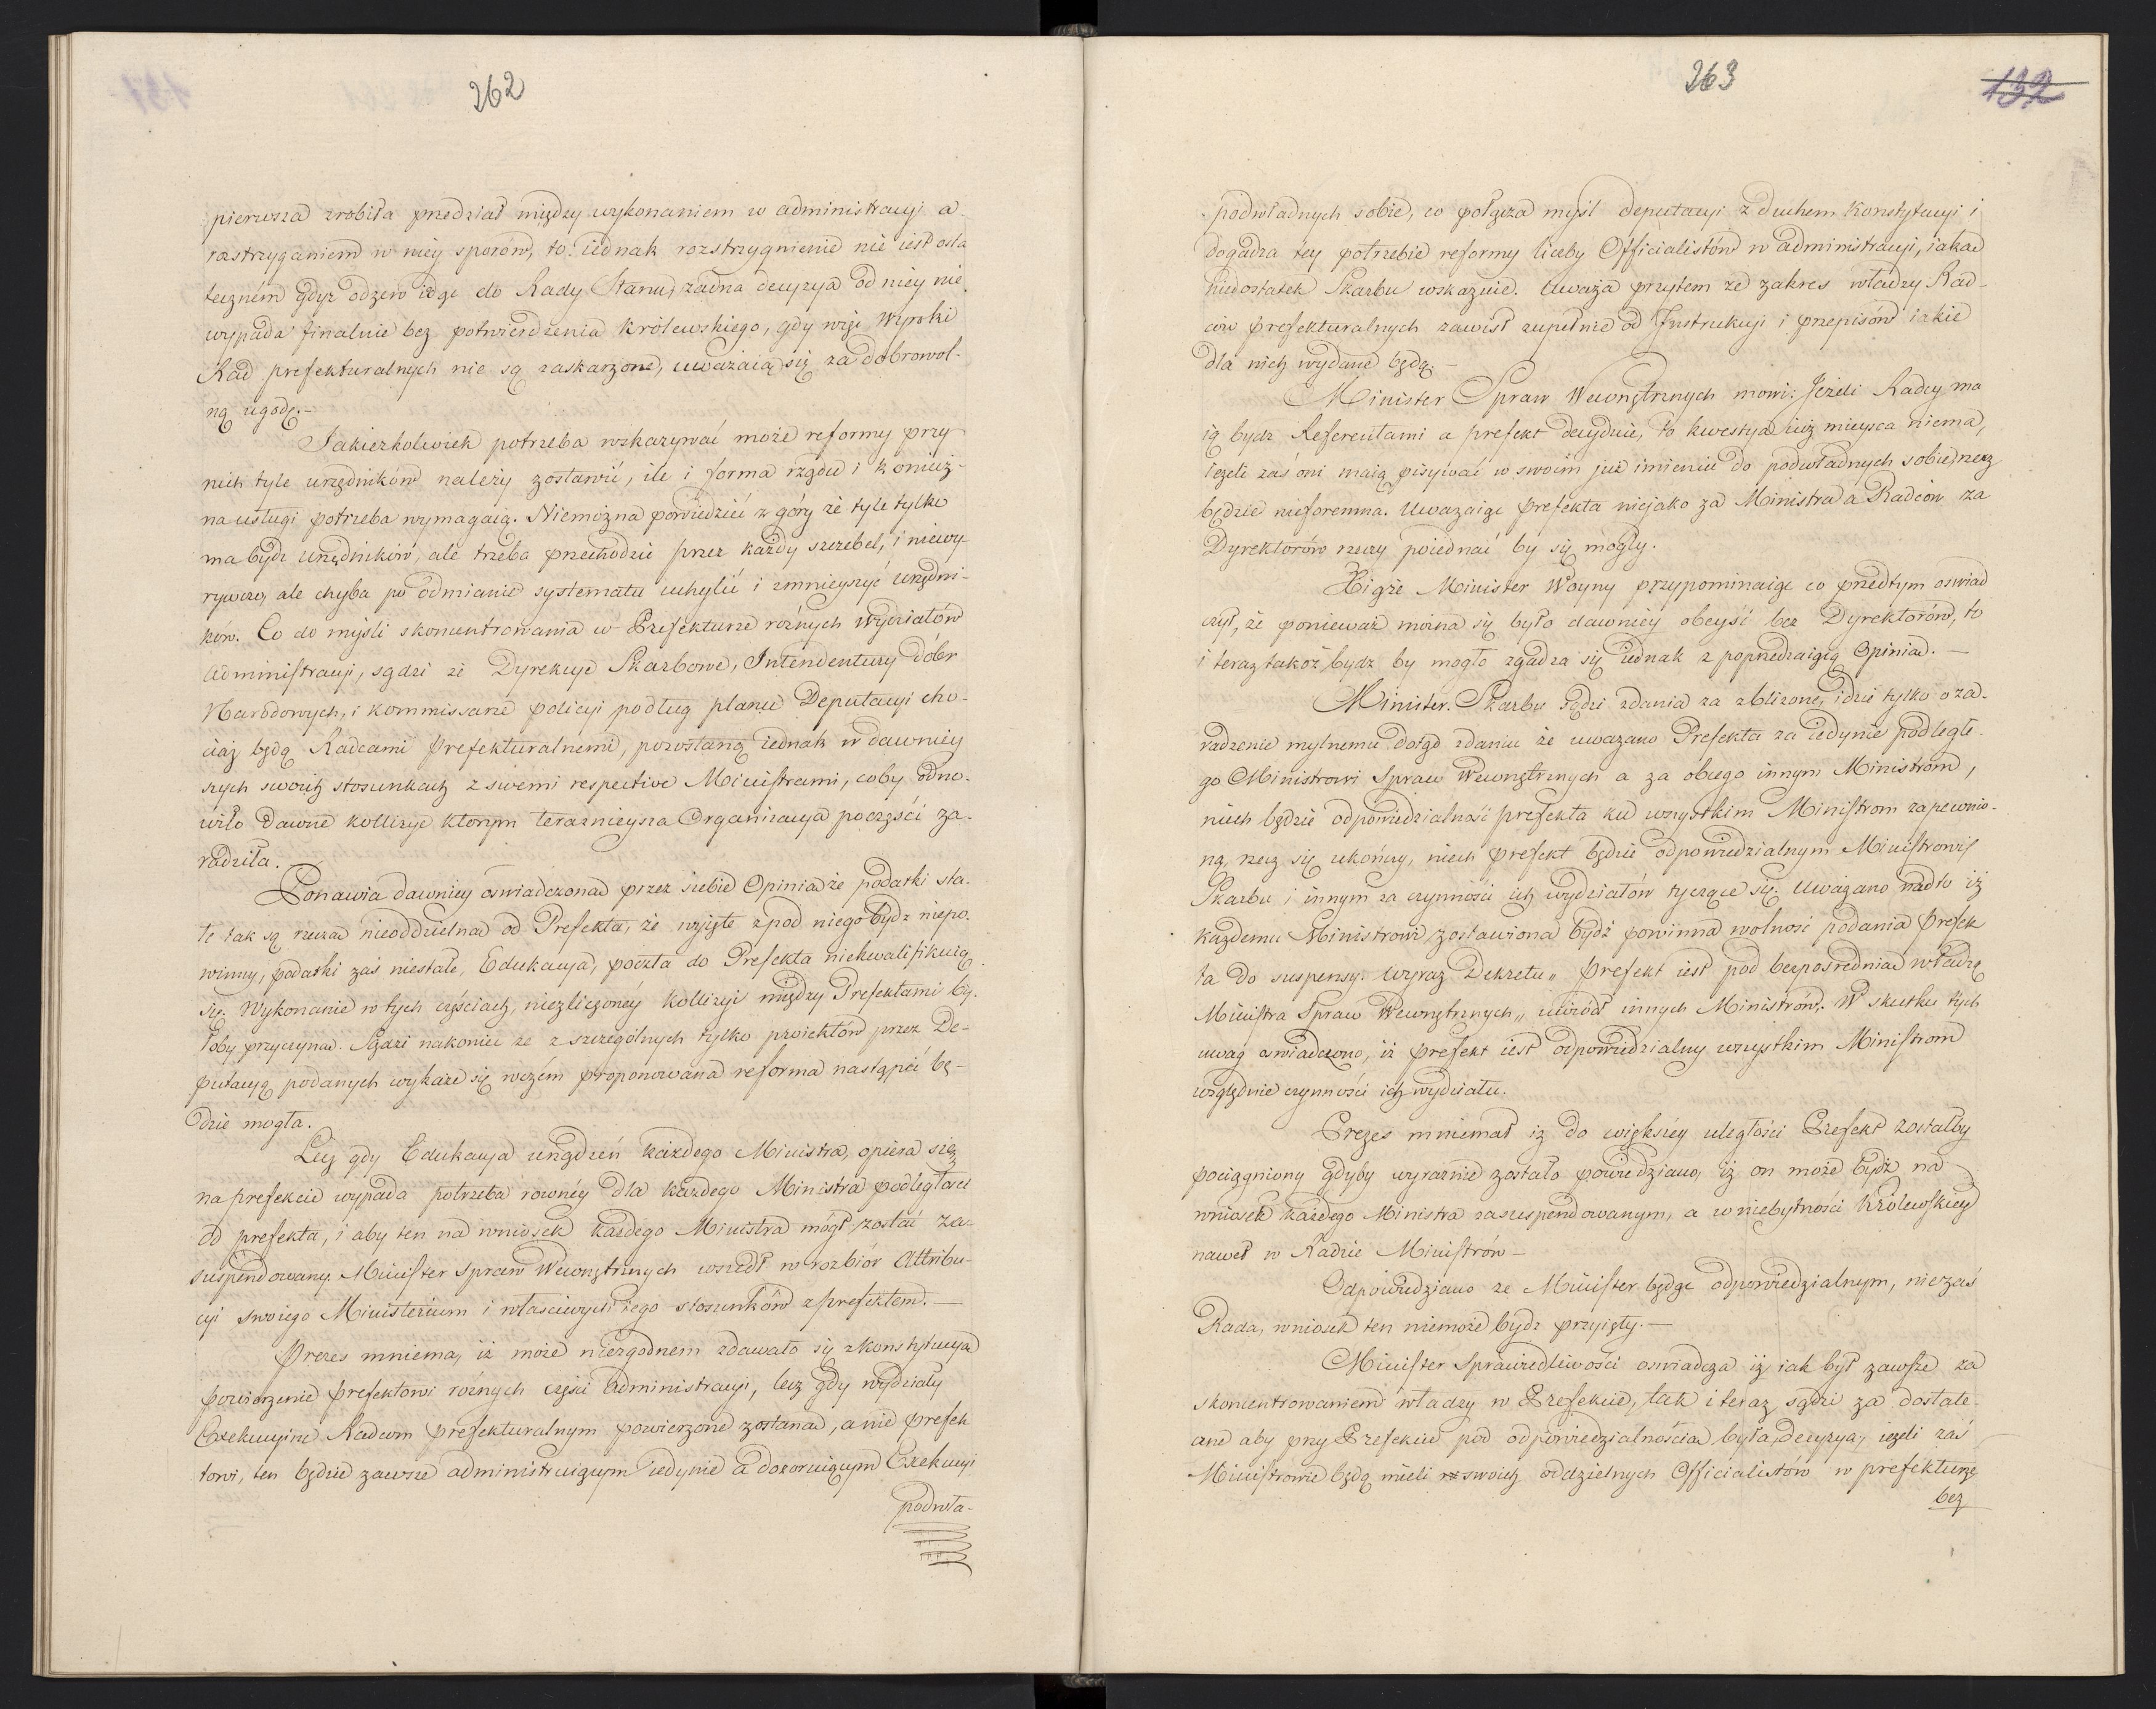 262
pierwsza zrobiła przedział między wykonaniem w administracyi a
rozstrzyganiem w niey sporów, to iednak rozstrzygnienie nie iest osta
teczném gdyż odzew idąc do Rady Stanu, żadna decyzya od niey nie
wypada finalnie bez potwierdzenia Królewskiego, gdy więc Wyroki
Rad prefekturalnych nie są zaskarżone, uważaią się za dobrowol-
ną ugodę.-
Jakieżkolwiek potrzeba wskazywać może reformy przy
nich tyle urzędników należy zostawić, ile i forma rządu i koniecz-
na usługi potrzeba wymagaią. Niemożna powiedzieć z góry że tyle tylko
ma bydz urzędników, ale trzeba przechodzić przez każdy szczebel, i niewy-
rywczo, ale chyba po odmianie systematu uchylić i zmnieyszyć urzędni-
ków. Co do myśli skoncentrowania w Prefekturze różnych wydziałów
administracyi, sądzi że Dyrekcye Skarbowe, Intendentury dóbr
Narodowych, i kommissarze policyi podług planu Deputacyi cho-
ciaż będą Radcami Prefekturalnemi, pozostaną iednak w dawniey
szych swoich stosunkach z swemi respective Ministrami, coby odno-
wiło dawne kollizye którym teraźnieysza Organizacya poczęści za-
radziła.
Ponawia dawniey oświadczoną przez siebie Opinią że podatki sta-
łe tak są rzeczą nieoddzielną od Prefekta, że wyięte zpod niego bydz niepo-
winny, podatki zaś niestałe, Edukacya, poczta do Prefekta niekwalifikuią
się. Wykonanie w tych częściach, niezliczoney kollizyi między Prefektami by-
łoby przyczyną. Sądzi nakoniec że z szczególnych tylko proiektów przez De-
putacyą podanych wykaże się wczém proponowana reforma nastąpić bę-
dzie mogła.
Lecz gdy Edukacya urządzeń każdego Ministra, opiera się
na prefekcie wypada potrzeba równéy dla każdego Ministra podległości
od prefekta, i aby ten na wniosek każdego Ministra mógł zostać za-
suspendowany. Minister Spraw Wewnętrznych wszedł w rozbiór Attribu-
cyi swoiego Ministerium i właściwych iego stosunków z prefektem.-
Prezes mniema, iż może niezgodnem zdawało się z konstytucyą
powierzenie prefektowi różnych części administracyi, lecz gdy wydziały
Exekucyine Radcom prefekturalnym powierzone zostaną, a nie prefek
towi, ten będzie zawsze administruiącym iedynie a dozoruiącym Exekucyi
podwła-
263
132
podwładnych sobie, co połącza myśl deputacyi z duchem Konstytucyi i
dogadza tey potrzebie reformy liczby Officialistów w administracyi, iaką
niedostatek Skarbu wskazuie. Uważa przytem że zakres władzy Rad-
ców prefekturalnych zawisł zupełnie od Instrukcyi i przepisów iakie
dla nich wydane będą.-
Minister Spraw Wewnętrznych mówi: Jeżeli Radcy ma
ią bydz Referentami a prefekt decyduie, to kwestya iuż mieysca niema,
ieżeli zaś oni maią pisywać w swoim już imieniu do podwładnych sobie, rzecz
będzie nieforemna. Uważaiąc prefekta niejako za Ministra a Radców za
Dyrektorów rzeczy poiednać by się mogły.
Xiąże Minister Woyny przypominaiąc co przedtym oświad
czył, że ponieważ można się było dawniey obeyść bez Dyrektorów, to
i teraz takoż bydz by mogło zgadza się iednak z poprzedzaiącą Opinią.-
Minister Skarbu sądzi zdania za zbliżone, idzie tylko o za-
radzenie mylnemu dotąd zdaniu że uważano Prefekta za iedynie podległe-
go Ministrowi Spraw Wewnętrznych a za obcego innym Ministrom,
niech będzie odpowiedzialność prefekta ku wszystkim Ministrom zapewnio-
ną, rzecz się ukończy, niech prefekt będzie odpowiedzialnym Ministrowi
Skarbu i innym za czynności ich wydziałów tyczące się. Uważano nadto iż
każdemu Ministrowi zostawiona bydź powinna wolność podania Prefek
ta do suspensy. Wyraz Dekretu „ Prefekt iest pod bezpośrednią władzą
Ministra Spraw Wewnętrznych „ uwiódł innych Ministrów. W skutku tych
uwag oświadczono, iż prefekt iest odpowiedzialny wszystkim Ministrom
względnie czynności ich wydziału.
Prezes mniemał iż do większey uległości Prefekt zostałby
pociągniony gdyby wyraźnie zostało powiedziano, iż on może bydz na
wniosek każdego Ministra zasuspendowanym, a w niebytności Królewskiey
nawet w Radzie Ministrów-
Odpowiedziano że Minister będąc odpowiedzialnym, nie zaś
Rada, wniosek ten niemoże bydz przyięty.-
Minister Sprawiedliwości oświadcza iż iak był zawsze za
skoncentrowaniem władzy w Prefekcie, tak i teraz sądzi za dostate-
czne aby przy Prefekcie pod odpowiedzialnością była decyzya, ieżeli zaś
Ministrowie będą mieli swoich oddzielnych Officialistów w prefekturze
bez